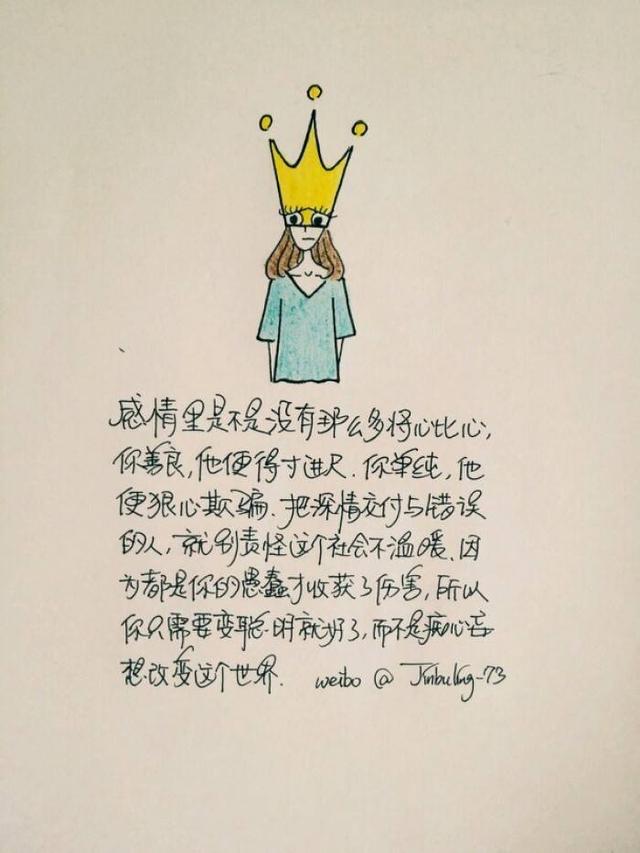 感情里是不是没有那么多将心比心,
你善良,他便得寸进尺.你单纯,他
便狠心欺骗.把深情交付与错误
的人,就别责怪这个社会不温暖.因
为都是你的愚蠢才收获了伤害,所以
你只需要变聪明就好了,而不是痴心妄
想改变这个世界. weibo @ Jinbuling-73